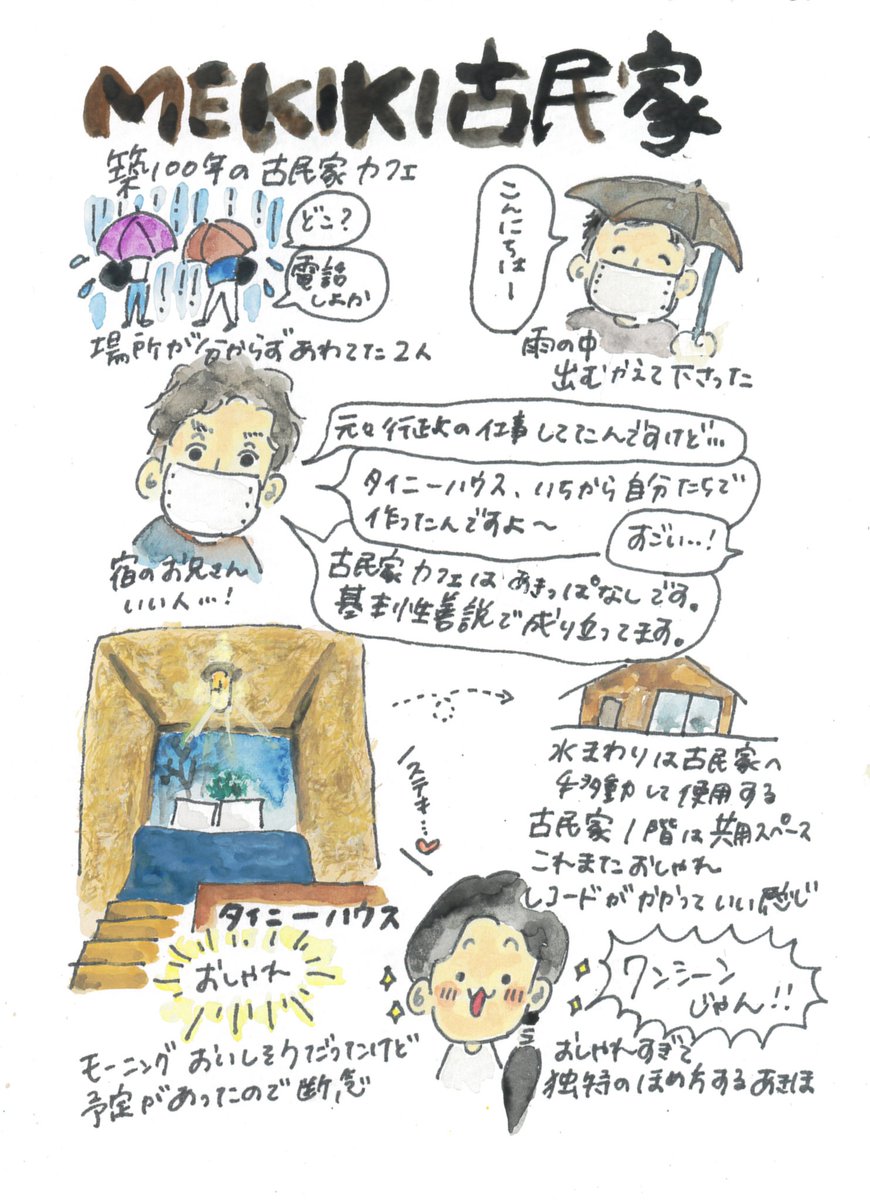 MEKIKI古民家
築100年の古民家カフェ
どこ?
電話
しよか
場所が分からずあわてた2人
こんにちはー
雨の中
出むかえて下さった
元々行政の仕事してたんですけど…
タイニーハウス、いちから自分たちで
作ったんですよ〜
すごい…!
古民家カフェはあきっぱなしです。
基本性善説で成り立ってます。
宿のお兄さん
いい人…!
ステキ…
水まわりは古民家へ
移動して使用する
古民家1階は共用スペース
これまたおしゃれ
レコードがかかっていい感じ
タイニーハウス
おしゃれ
ワンシーン
じゃん!!
モーニングおいしそうだったけど
予定があったので断念
おしゃれすぎて
独特のほめ方するあきほ